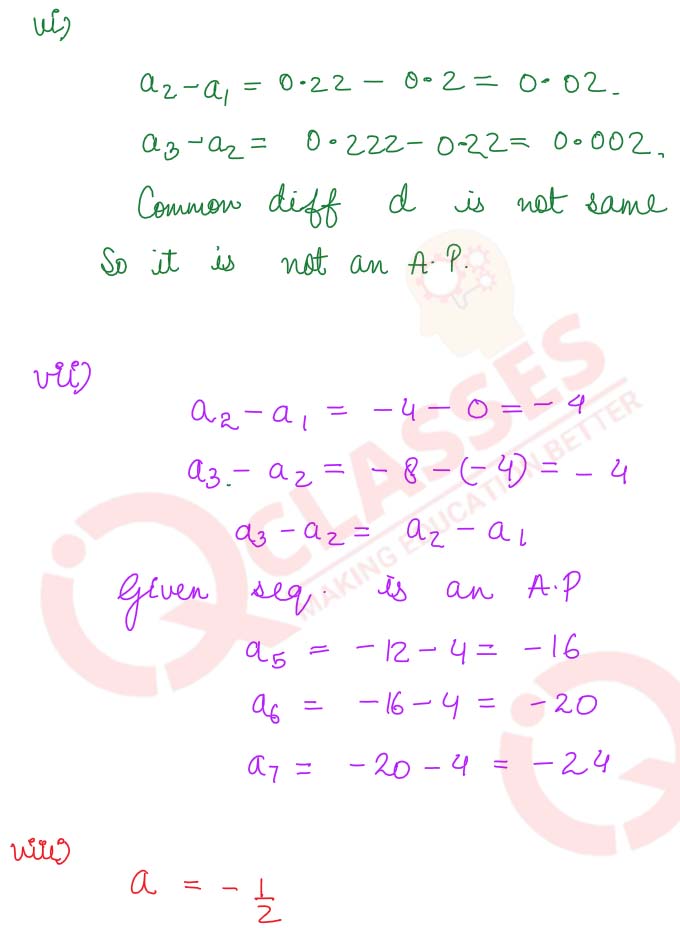 vi)
a₂ - a₁ = 0.22 - 0.2 = 0.02.
a₃ - a₂ = 0.222 - 0.22 = 0.002.
Common diff d is not same
So it is not an A.P.
vii)
a₂ - a₁ = -4 - 0 = -4
a₃ - a₂ = -8 - (-4) = -4
a₃ - a₂ = a₂ - a₁
Given seq. is an A.P
a₅ = -12 - 4 = -16
a₆ = -16 - 4 = -20
a₇ = -20 - 4 = -24
viii)
a = -1/2
IQ CLASSES
MAKING EDUCATION BETTER